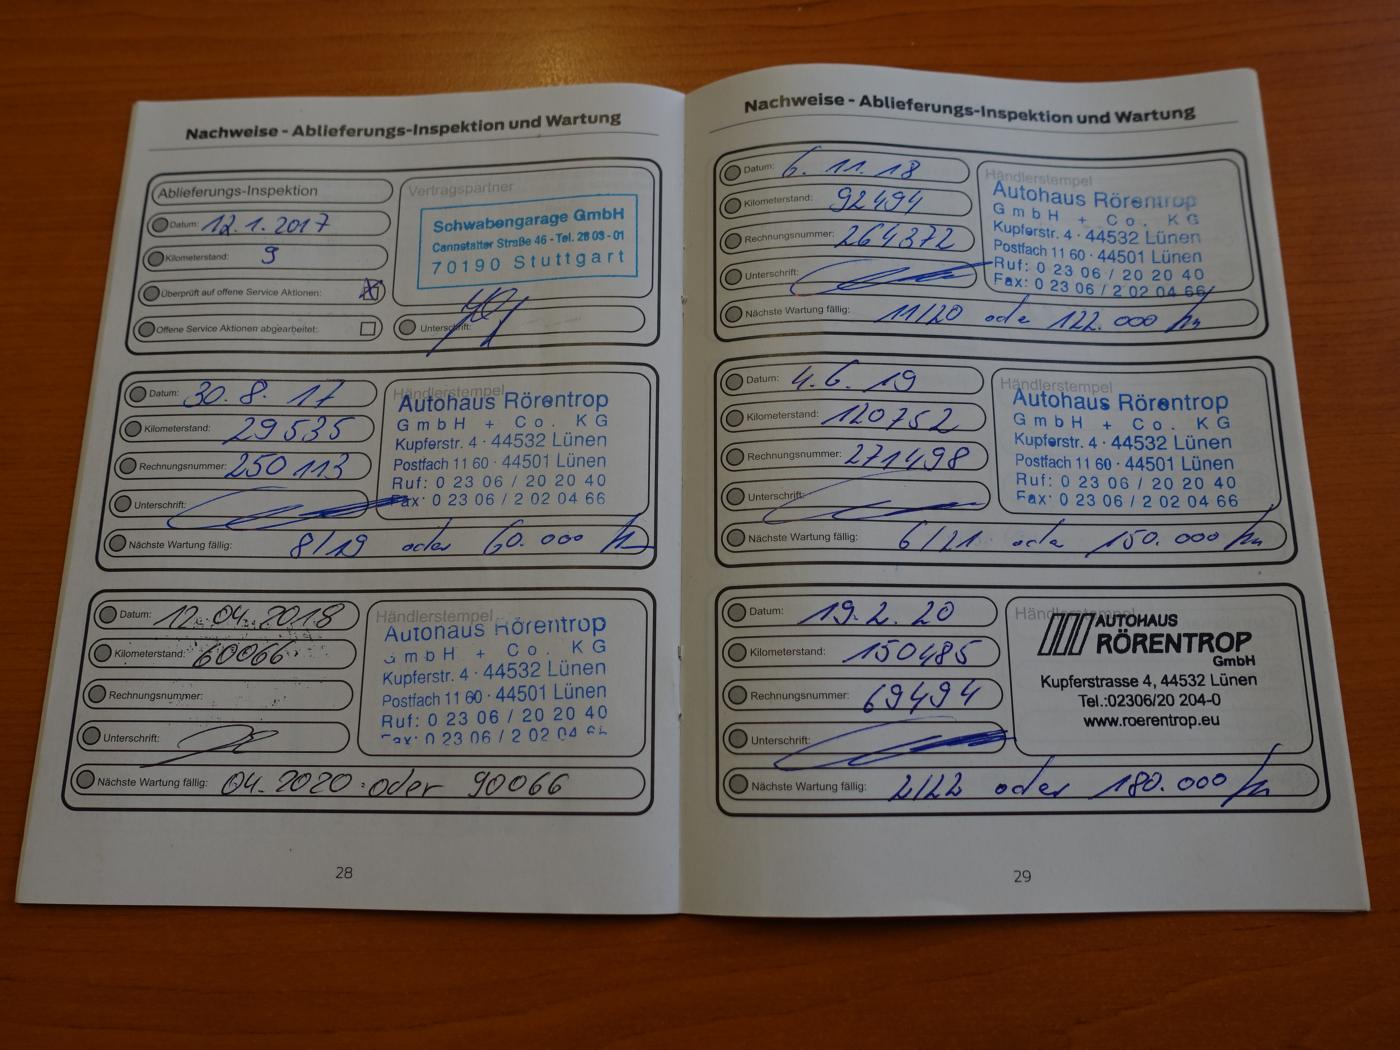 Nachweise - Ablieferungs-Inspektion und Wartung
Ablieferungs-Inspektion
Datum: 12.1.2017
Kilometerstand: 9
Überprüft auf offene Service Aktionen:
Offene Service Aktionen abgearbeitet:
Vertragspartner
Schwabengarage GmbH
Cannstatter Straße 46 - Tel. 28 03 - 01
70190 Stuttgart
Unterschrift:
Datum: 30. 8. 17
Kilometerstand: 29535
Rechnungsnummer: 250113
Unterschrift:
Händlerstempel
Autohaus Rörentrop
GmbH + Co. KG
Kupferstr. 4 · 44532 Lünen
Postfach 11 60 · 44501 Lünen
Ruf: 0 23 06 / 20 20 40
Fax: 0 23 06 / 2 02 04 66
Nächste Wartung fällig: 8/19 oder 60.000 km
Datum: 12.04.2018
Kilometerstand: 60066
Rechnungsnummer:
Unterschrift:
Händlerstempel
Autohaus Rörentrop
GmbH + Co. KG
Kupferstr. 4 · 44532 Lünen
Postfach 11 60 · 44501 Lünen
Ruf: 0 23 06 / 20 20 40
Fax: 0 23 06 / 2 02 04 66
Nächste Wartung fällig: 04.2020 oder 90066
28
Nachweise - Ablieferungs-Inspektion und Wartung
Datum: 6. 11. 18
Kilometerstand: 92494
Rechnungsnummer: 264372
Unterschrift:
Händlerstempel
Autohaus Rörentrop
GmbH + Co. KG
Kupferstr. 4 · 44532 Lünen
Postfach 11 60 · 44501 Lünen
Ruf: 0 23 06 / 20 20 40
Fax: 0 23 06 / 2 02 04 66
Nächste Wartung fällig: 11/20 oder 122.000 km
Datum: 4.6. 19
Kilometerstand: 120752
Rechnungsnummer: 271498
Unterschrift:
Händlerstempel
Autohaus Rörentrop
GmbH + Co. KG
Kupferstr. 4 · 44532 Lünen
Postfach 11 60 · 44501 Lünen
Ruf: 0 23 06 / 20 20 40
Fax: 0 23 06 / 2 02 04 66
Nächste Wartung fällig: 6/21 oder 150.000 km
Datum: 19.2. 20
Kilometerstand: 150485
Rechnungsnummer: 69494
Unterschrift:
Händlerstempel
AUTOHAUS
RÖRENTROP
GmbH
Kupferstrasse 4, 44532 Lünen
Tel.:02306/20 204-0
www.roerentrop.eu
Nächste Wartung fällig: 2/22 oder 180.000 km
29